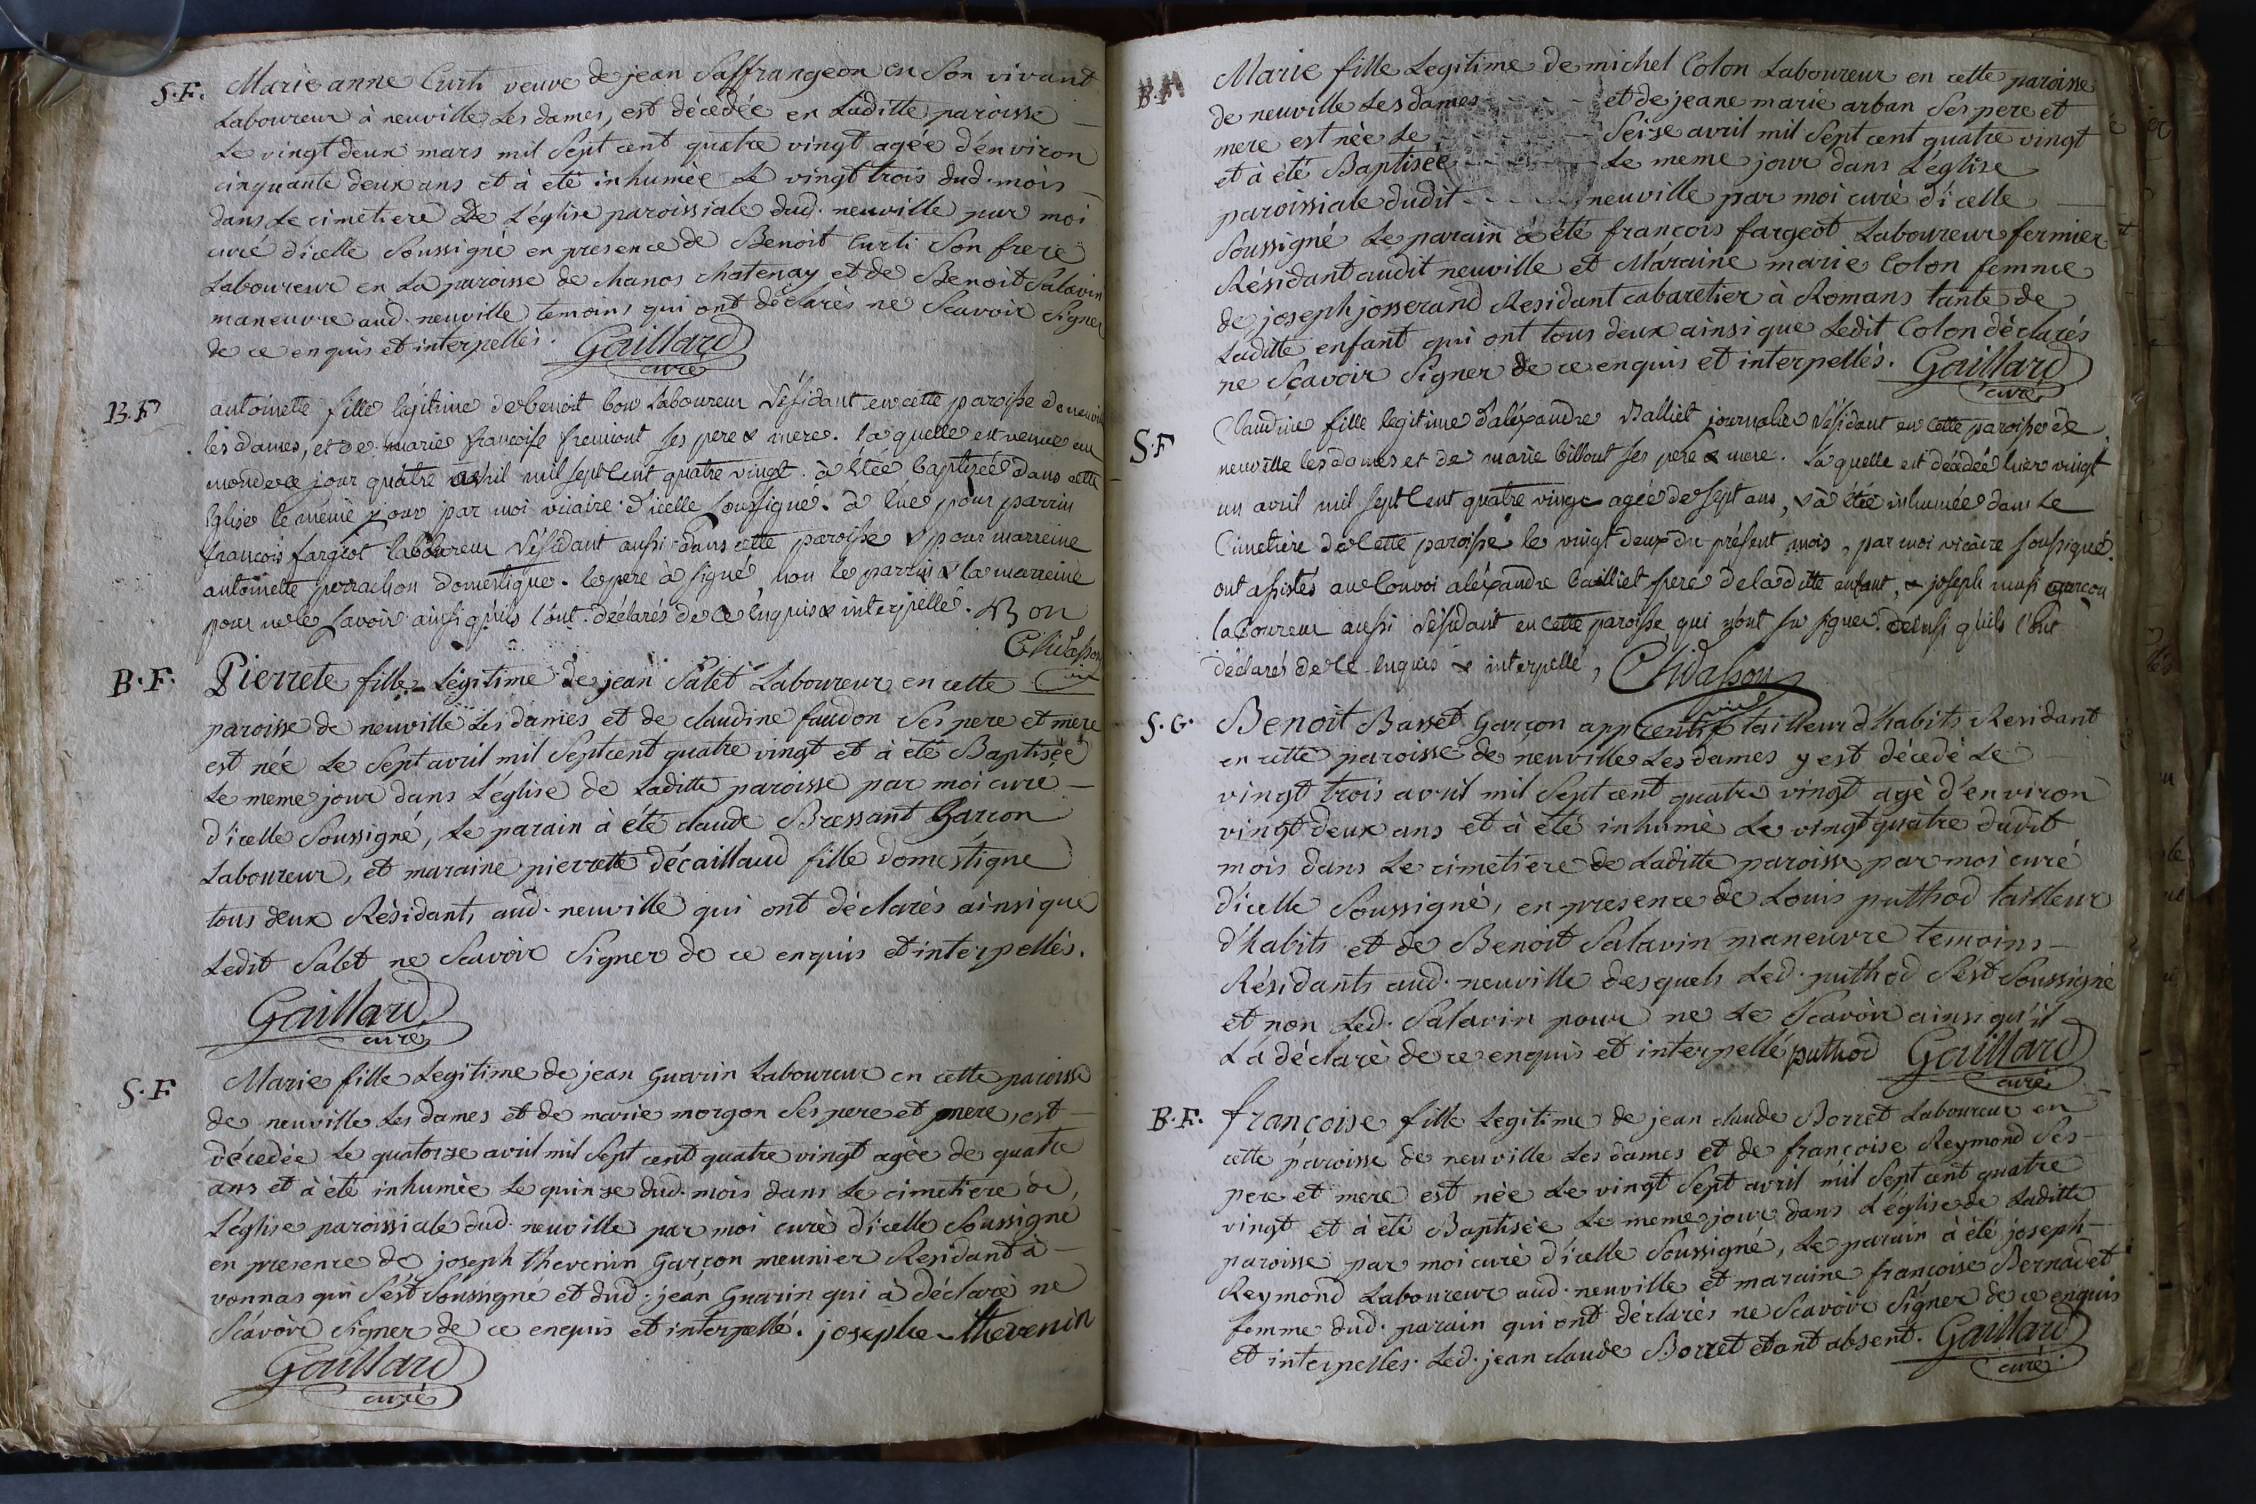 S.F. Marie anne Curti veuve de jean Saffrangeon en Son vivant
Laboureur à neuville Les dames, est décédée en Laditte paroisse
Le vingt deux mars mil Sept cent quatre vingt agée d'environ
cinquante deux ans et à été inhumèe Le vingt trois dud. mois
dans Le cimetiere De L'église paroissiale dud. neuville par moi
curé d'icelle Soussigné en presence de Benoit Curti Son frere
Laboureur en La paroisse de chanos chatenay et de Benoit Salavin
maneuvre aud. neuville temoins qui ont déclarès ne Scavoir Signer
de ce enquis et interpellès. Gaillard
curé
B.F. antoinette fille légitime de benoit bon laboureur résidant en cette paroisse de neuville
les dames, et de marie francoise fremiont ses pere & mere. laquelle est venue au
monde ce jour quatre avril mil sept cent quatre vingt. à étée baptisée dans cette
église le même jour par moi vicaire d'icelle soussigné. à eue pour parrin
francois fargeot laboureur résidant aussi dans cette paroisse & pour marreine
antoinette perrachon domestique. le pere à signé non le parrin & la marreine
pour ne le savoir ainsi qu'ils l'ont déclarés de ce enquis & interpellé. Bon
Chidasson
vic
B.F. Pierrete fille Légitime de jean Salet Laboureur en cette
paroisse de neuville Les dames et de claudine faudon Ses pere et mere
est née Le Sept avril mil Sept cent quatre vingt et à été Baptisée
Le meme jour dans L'église de Laditte paroisse par moi curé
d'icelle Soussigné, Le parain à été claude Bressant Garcon
Laboureur, et maraine pierrette décaillaud fille domestique
tous deux Résidants aud. neuville qui ont déclarès ainsi que
Ledit Salet ne Scavoir Signer de ce enquis et interpellés.
Gaillard
curé
S.F Marie fille Legitime de jean Guerin Laboureur en cette paroisse
de neuville Les dames et de marie morgon Ses pere et mere, est
décedée Le quatorze avril mil Sept cent quatre vingt agée de quatre
ans et à été inhumée Le quinze dud. mois dans Le cimetiere de
L'église paroissiale dud. neuville par moi curé d'icelle Soussigné
en presence de joseph thevenin Garçon meunier Residant à
vonnas qui S'est Soussigné et dud. jean Guerin qui à déclaré ne
Scavoir Signer de ce enquis et interpellé. josephe thevenin
Gaillard
curé
B.M Marie fille Legitime de michel Colon Laboureur en cette paroisse
de neuville Les dames et de jeane marie arban Ses pere et
mere est née Le Seize avril mil Sept cent quatre vingt
et à été Baptisée Le meme jour dans L'église
paroissiale dudit neuville par moi curé d'icelle
Soussigné Le parain à été françois fargeot Laboureur fermier
Résidant audit neuville et Maraine marie Colon femme
de joseph josserand Residant cabaretier à Romans tante de
Laditte enfant qui ont tous deux ainsi que Ledit Colon déclarés
ne Sçavoir Signer de ce enquis et interpellés. Gaillard
curé
S.F Claudine fille legitime d'aléxandre Balliet journalier résidant en cette paroisse de
neuville les dames et de marie billout ses pere & mere. laquelle est décédée hier vingt
un avril mil sept cent quatre vingt agée de sept ans, & à étée inhumée dans le
cimetière de cette paroisse le vingt deux du présent mois, par moi vicaire soussigné.
ont assistés au convoi aléxandre bailliet pere de la ditte enfant, & joseph garcon
laboureur aussi résidant en cette paroisse qui n'ont su signer ainsi qu'ils l'ont
déclarés de ce enquis & interpellé, Chidasson
vic
S.G. Benoit Basset Garçon apprentif tailleur d'habits Residant
en cette paroisse de neuville Les dames y est décedé Le
vingt trois avril mil Sept cent quatre vingt agè d'environ
vingt deux ans et à été inhumé Le vingt quatre dudit
mois dans Le cimetiere de Laditte paroisse par moi curé
d'icelle Soussigné, en presence de Louis puthod tailleur
d'habits et de Benoit Salavin maneuvre temoins
Résidants aud. neuville desquels Led. puthod S'est Soussigné
et non Led. Salavin pour ne Le Scavoir ainsi qu'il
L'a déclaré de ce enquis et interpellé puthod Gaillard
curé
B.F. françoise fille Legitime de jean claude Borret Laboureur en
cette paroisse de neuville Les dames et de françoise Reymond Ses
pere et mere est née Le vingt Sept avril mil Sept cent quatre
vingt et à été Baptisée Le meme jour dans L'église de Laditte
paroisse par moi curé d'icelle Soussigné, Le parain à été joseph
Reymond Laboureur aud. neuville et maraine françoise Bernadet
femme dud. parain qui ont déclarès ne Scavoir Signer de ce enquis
et interpellés. Led. jean claude Borret etant absent. Gaillard
curé.